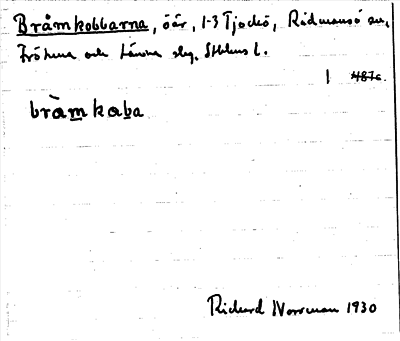 Bråmkobbarna, öar, 1-3 Tjockö, Rådmansö sn,
Fröhuna och Länna slg. Sthlms l.
1 487c.
bràmkaba
Richard Norrman 1930